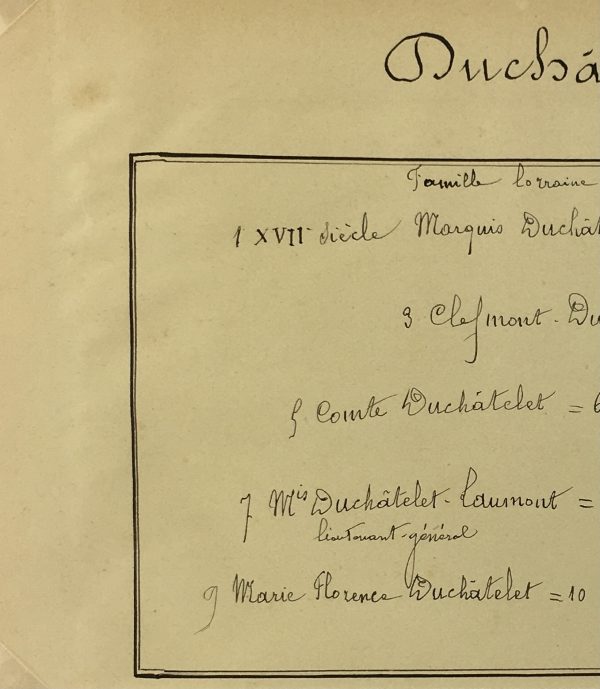 Duchâ
Famille lorraine
1 XVII siècle Marquis Duchât
3 Clefmont - Du
5 Comte Duchâtelet = 6
7 Mis Duchâtelet - Laumont =
lieutenant-général
9 Marie Florence Duchâtelet = 10